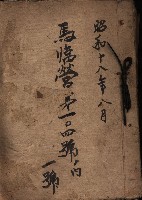 昭和十八年八月
馬臨營第一〇四號ノ内
一號